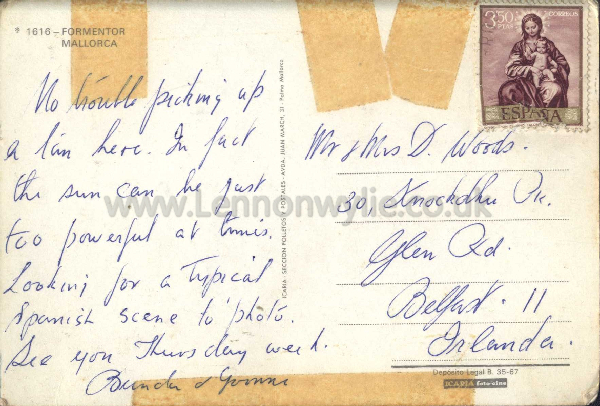 * 1616 – FORMENTOR
MALLORCA
3,50
PTAS
CORREOS
ESPAÑA
No trouble picking up
a tan here. In fact
the sun can be just
too powerful at times.
Looking for a typical
Spanish scene to photo.
See you Thursday week.
ICARIA - SECCION POLLENSA Y POSTALES - AVDA. JUAN MARCH, 21 - Palma Mallorca
Mr & Mrs D. Woods.
30, Knockdhu Pk.
Glen Rd.
Belfast - 11
Irlanda.
Depósito Legal B. 35-67
ICARIA foto-cine
www.Lennonwylie.co.uk